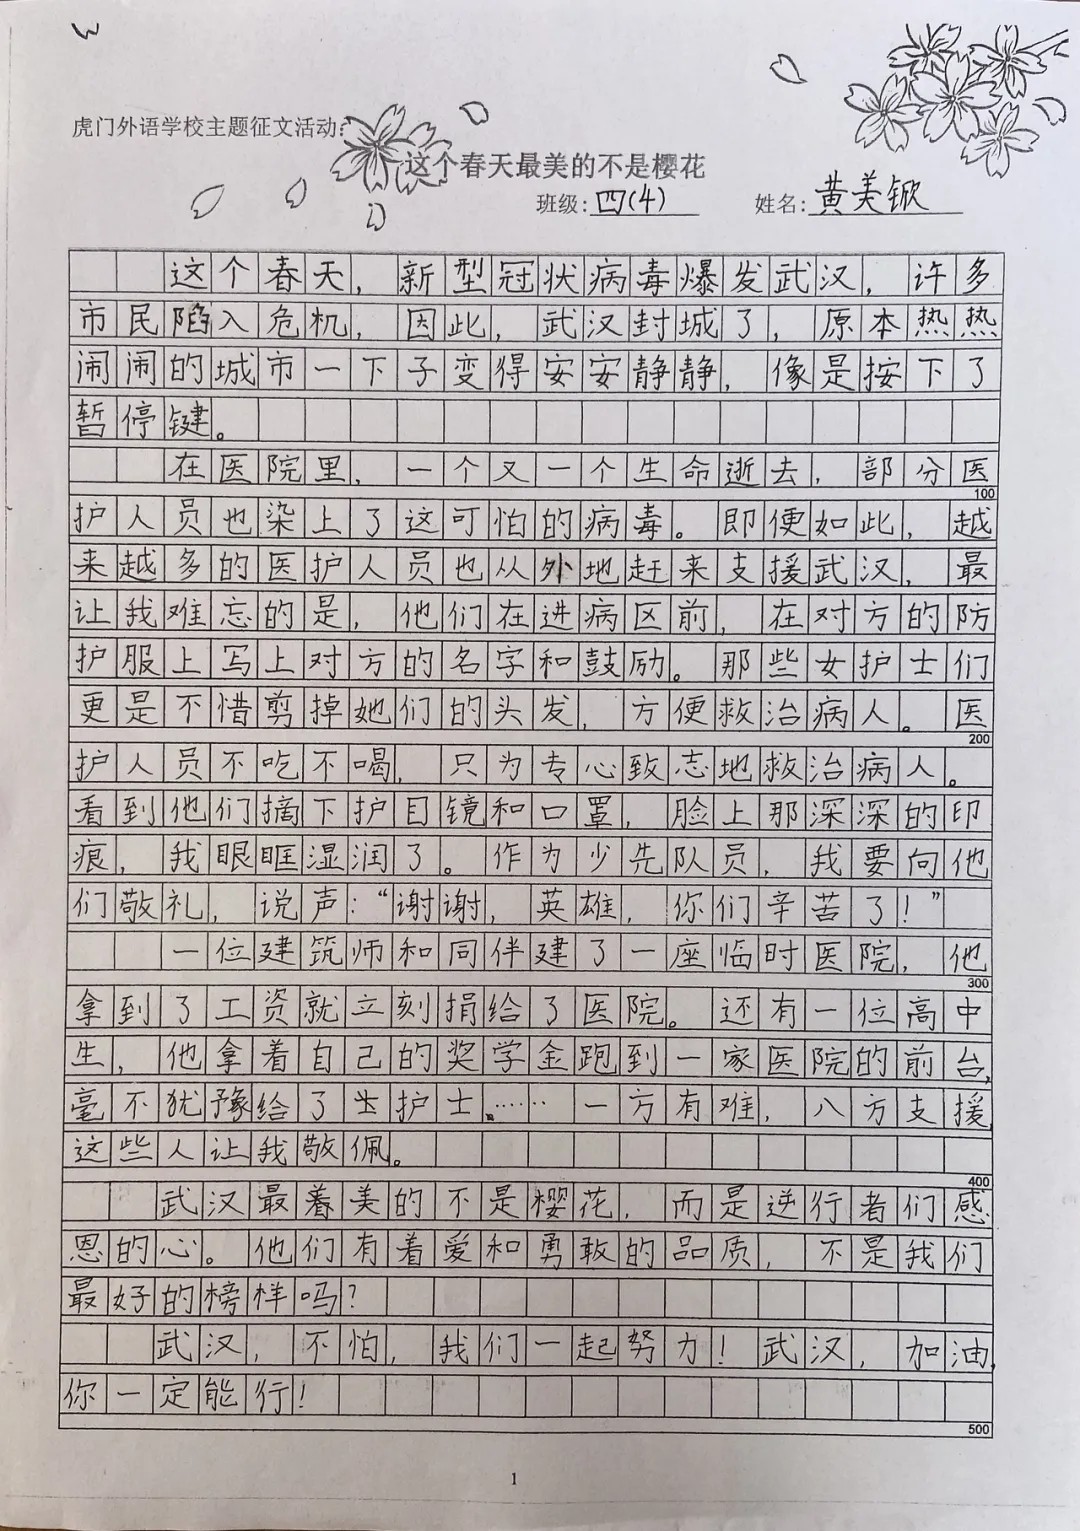 虎门外语学校主题征文活动:
这个春天最美的不是樱花
班级:四(4) 姓名:黄美锨
这个春天，新型冠状病毒爆发武汉，许多
市民陷入危机，因此，武汉封城了，原本热热
闹闹的城市一下子变得安安静静，像是按下了
暂停键。
在医院里，一个又一个生命逝去，部分医
100
护人员也染上了这可怕的病毒。即便如此，越
来越多的医护人员也从外地赶来支援武汉，最
让我难忘的是，他们在进病区前，在对方的防
护服上写上对方的名字和鼓励。那些女护士们
更是不惜剪掉她们的头发，方便救治病人。医
200
护人员不吃不喝，只为专心致志地救治病人。
看到他们摘下护目镜和口罩，脸上那深深的印
痕，我眼眶湿润了。作为少先队员，我要向他
们敬礼，说声：“谢谢，英雄，你们辛苦了！”
一位建筑师和同伴建了一座临时医院，他
300
拿到了工资就立刻捐给了医院。还有一位高中
生，他拿着自己的奖学金跑到一家医院的前台，
毫不犹豫给了护士……一方有难，八方支援，
这些人让我敬佩。
400
武汉最美的不是樱花，而是逆行者们感
恩的心。他们有着爱和勇敢的品质，不是我们
最好的榜样吗？
武汉，不怕，我们一起努力！武汉，加油，
你一定能行！
500
1